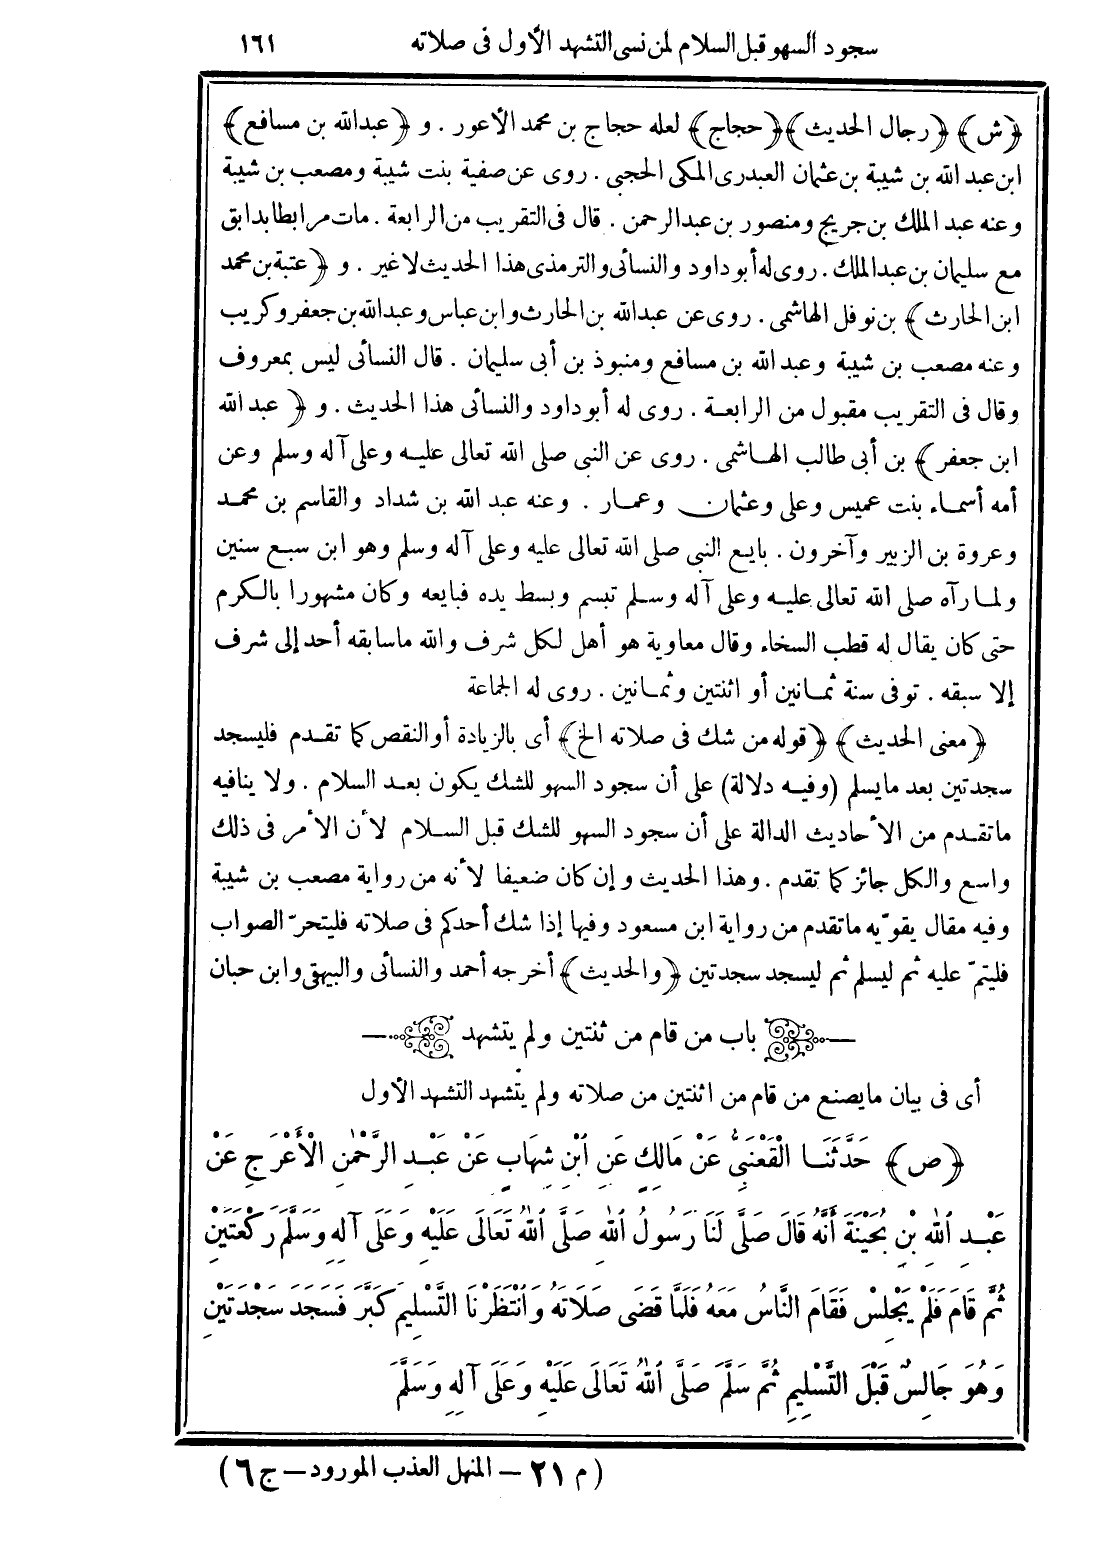 سجود السهو قبل السلام لمن نسى التشهد الأول فى صلاته ١٦١
﴿ش﴾ ﴿رجال الحديث﴾ ﴿حجاج﴾ لعله حجاج بن محمد الأعور . و ﴿عبدالله بن مسافع﴾
ابن عبد الله بن شيبة بن عثمان العبدرى المكى الحجبى . روى عن صفية بنت شيبة ومصعب بن شيبة
وعنه عبد الملك بن جريج ومنصور بن عبدالرحمن . قال فى التقريب من الرابعة . مات مرابطا بدابق
مع سليمان بن عبدالملك . روى له أبو داود والنسائى والترمذى هذا الحديث لاغير . و ﴿عتبة بن محمد
ابن الحارث﴾ بن نوفل الهاشمى . روى عن عبدالله بن الحارث وابن عباس وعبدالله بن جعفر وكريب
وعنه مصعب بن شيبة وعبد الله بن مسافع ومنبوذ بن أبى سليمان . قال النسائى ليس بمعروف
وقال فى التقريب مقبول من الرابعة . روى له أبوداود والنسائى هذا الحديث . و ﴿عبد الله
ابن جعفر﴾ بن أبى طالب الهاشمى . روى عن النبى صلى الله تعالى عليه وعلى آله وسلم وعن
أمه أسماء بنت عميس وعلى وعثمان وعمار . وعنه عبد الله بن شداد والقاسم بن محمد
وعروة بن الزبير وآخرون . بايع النبى صلى الله تعالى عليه وعلى آله وسلم وهو ابن سبع سنين
ولما رآه صلى الله تعالى عليه وعلى آله وسلم تبسم وبسط يده فبايعه وكان مشهورا بالكرم
حتى كان يقال له قطب السخاء وقال معاوية هو أهل لكل شرف والله ماسابقه أحد إلى شرف
إلا سبقه . توفى سنة ثمانين أو اثنتين وثمانين . روى له الجماعة
﴿معنى الحديث﴾ ﴿قوله من شك فى صلاته الخ﴾ أى بالزيادة أو النقص كما تقدم فليسجد
سجدتين بعد مايسلم (وفيه دلالة) على أن سجود السهو للشك يكون بعد السلام . ولا ينافيه
ماتقدم من الأحاديث الدالة على أن سجود السهو للشك قبل السلام لأن الأمر فى ذلك
واسع والكل جائز كما تقدم . وهذا الحديث وإن كان ضعيفا لأنه من رواية مصعب بن شيبة
وفيه مقال يقوّيه ماتقدم من رواية ابن مسعود وفيها إذا شك أحدكم فى صلاته فليتحرّ الصواب
فليتمّ عليه ثم ليسلم ثم ليسجد سجدتين ﴿والحديث﴾ أخرجه أحمد والنسائى والبيهقى وابن حبان
باب من قام من ثنتين ولم يتشهد
أى فى بيان مايصنع من قام من اثنتين من صلاته ولم يتشهد التشهد الأول
﴿ص﴾ حَدَّثَنَا الْقَعْنَبِيُّ عَنْ مَالِكٍ عَنِ ابْنِ شِهَابٍ عَنْ عَبْدِ الرَّحْمٰنِ الْأَعْرَجِ عَنْ
عَبْدِ اللهِ بْنِ بُحَيْنَةَ أَنَّهُ قَالَ صَلَّى لَنَا رَسُولُ اللهِ صَلَّى اللهُ تَعَالَى عَلَيْهِ وَعَلَى آلِهِ وَسَلَّمَ رَكْعَتَيْنِ
ثُمَّ قَامَ فَلَمْ يَجْلِسْ فَقَامَ النَّاسُ مَعَهُ فَلَمَّا قَضَى صَلَاتَهُ وَانْتَظَرْنَا التَّسْلِيمَ كَبَّرَ فَسَجَدَ سَجْدَتَيْنِ
وَهُوَ جَالِسٌ قَبْلَ التَّسْلِيمِ ثُمَّ سَلَّمَ صَلَّى اللهُ تَعَالَى عَلَيْهِ وَعَلَى آلِهِ وَسَلَّمَ
(م ٢١ – المنهل العذب المورود – ج ٦)